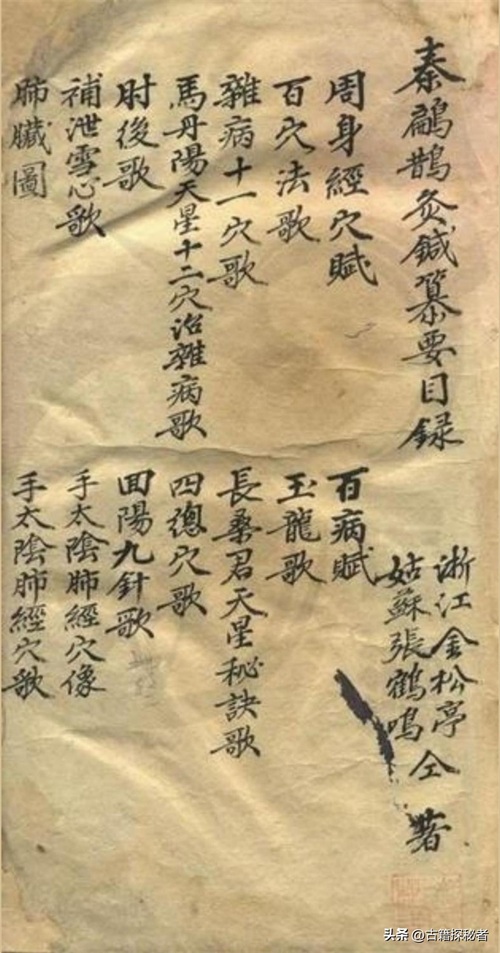 秦鶣鵲灸鍼纂要目録
浙江金松亭
姑蘇張鶴鳴
仝著
周身經穴賦
百病賦
百穴法歌
玉龍歌
雜病十一穴歌
長桑君天星秘訣歌
馬丹陽天星十二穴治雜病歌
四總穴歌
肘後歌
囬陽九針歌
補泄雪心歌
手太陰肺經穴像
肺臟圖
手太陰肺經穴歌
头条 @古籍探秘者